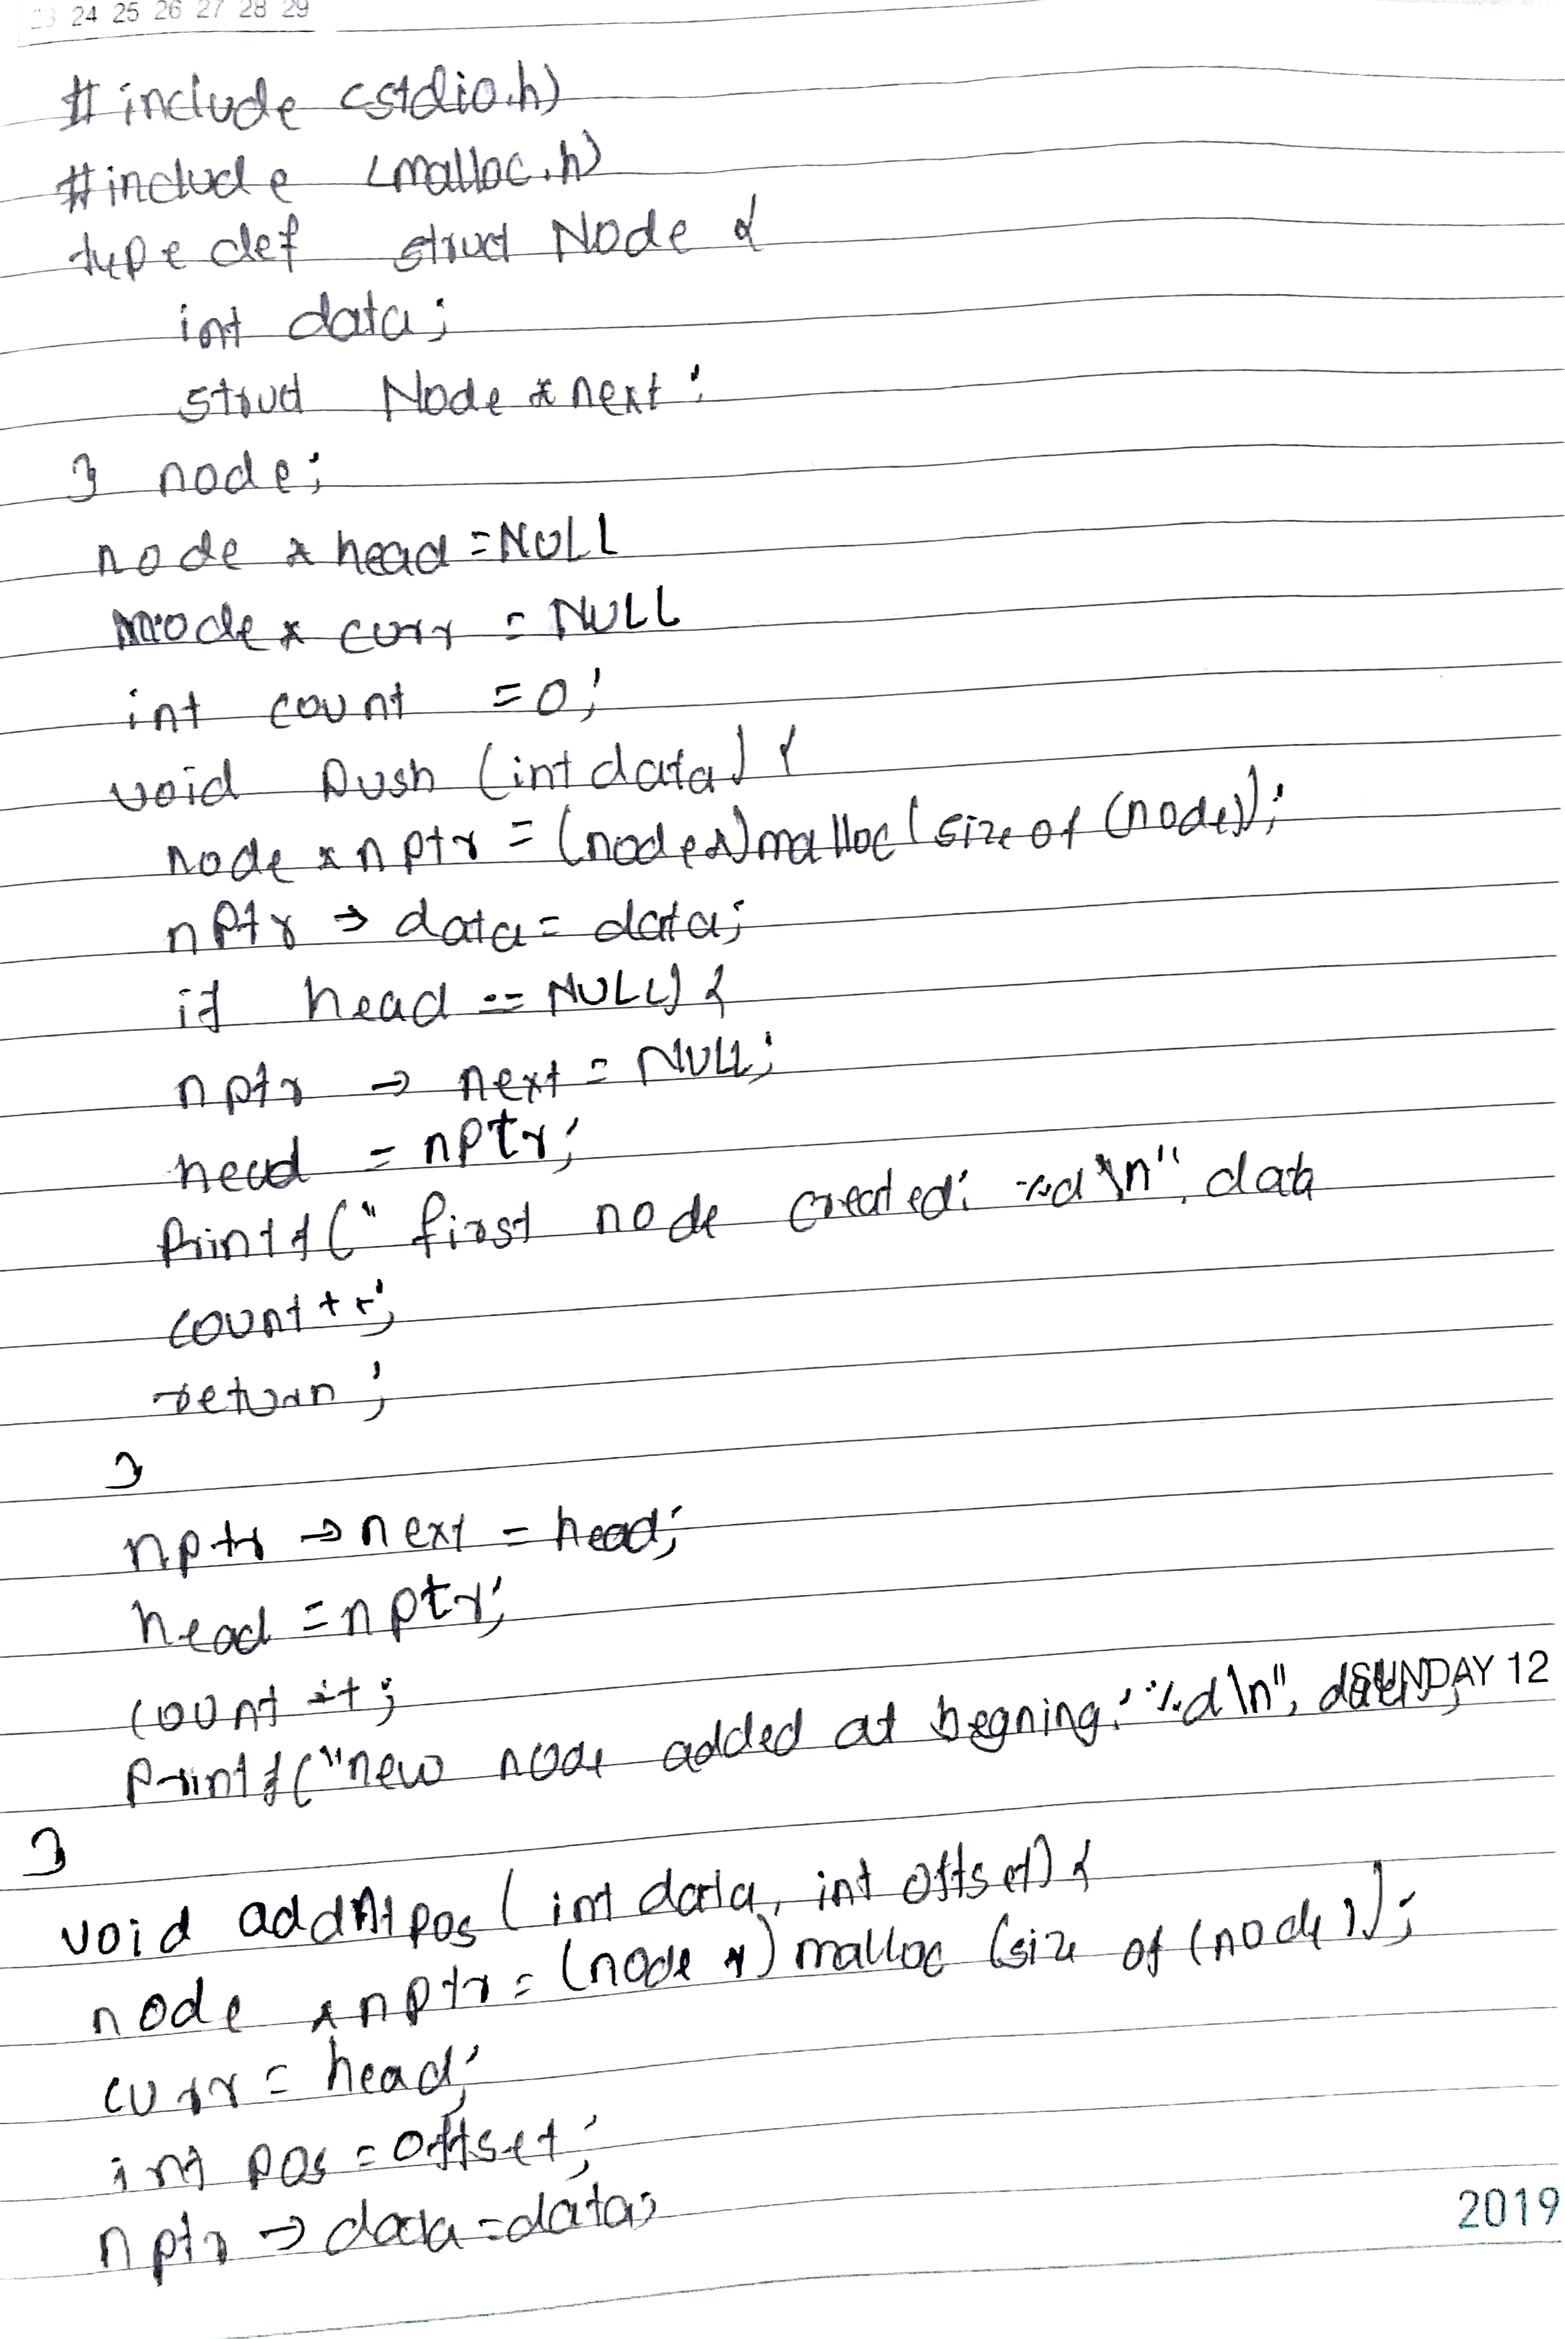 23 24 25 26 27 28 29
#include <stdio.h)
#include <malloc.h)
typedef struct Node {
int data;
struct Node * next;
} node;
node * head = NULL
node * curr = NULL
int count = 0;
void Push (int data) {
node * nptr = (node*) malloc (size of (node));
nptr → data = data;
if head == NULL) {
nptr → next = NULL;
head = nptr;
Printf (" first node created: %d \n", data
count ++;
return ;
}
nptr → next = head;
head = nptr;
count ++;
Printf ("new node added at begning: %d \n", data);
SUNDAY 12
}
void addAtpos (int data, int offset) {
node * nptr = (node *) malloc (size of (node));
curr = head;
int pos = offset;
nptr → data = data;
2019